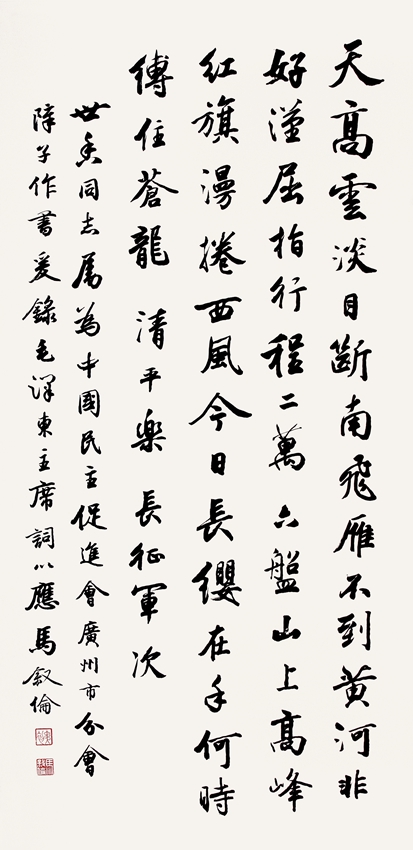 天高雲淡目斷南飛雁不到黃河非
好漢屈指行程二萬六盤山上高峰
紅旗漫捲西風今日長纓在手何時
縛住蒼龍 清平樂 長征軍次
世同志属為中國民主促進會廣州市分會
障子作書爰錄毛澤東主席詞以應 馬叙倫